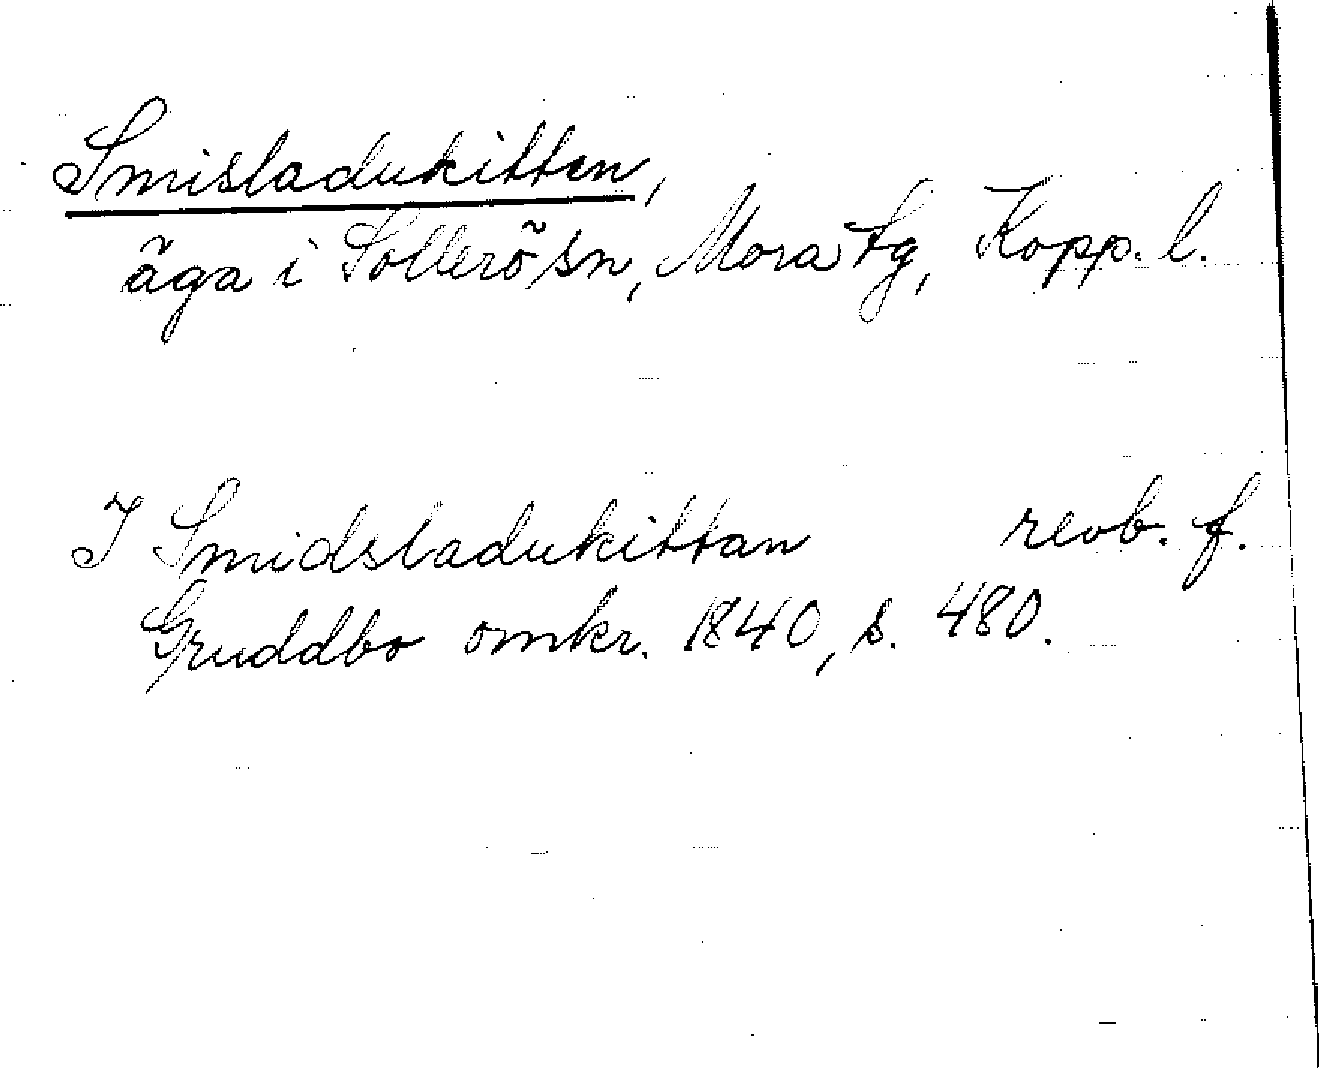 Smisladukittan,
äga i Sollerö sn, Mora tg, Kopp. l.
I Smidsladukittan revb. f.
Gruddbo omkr. 1840, s. 480.